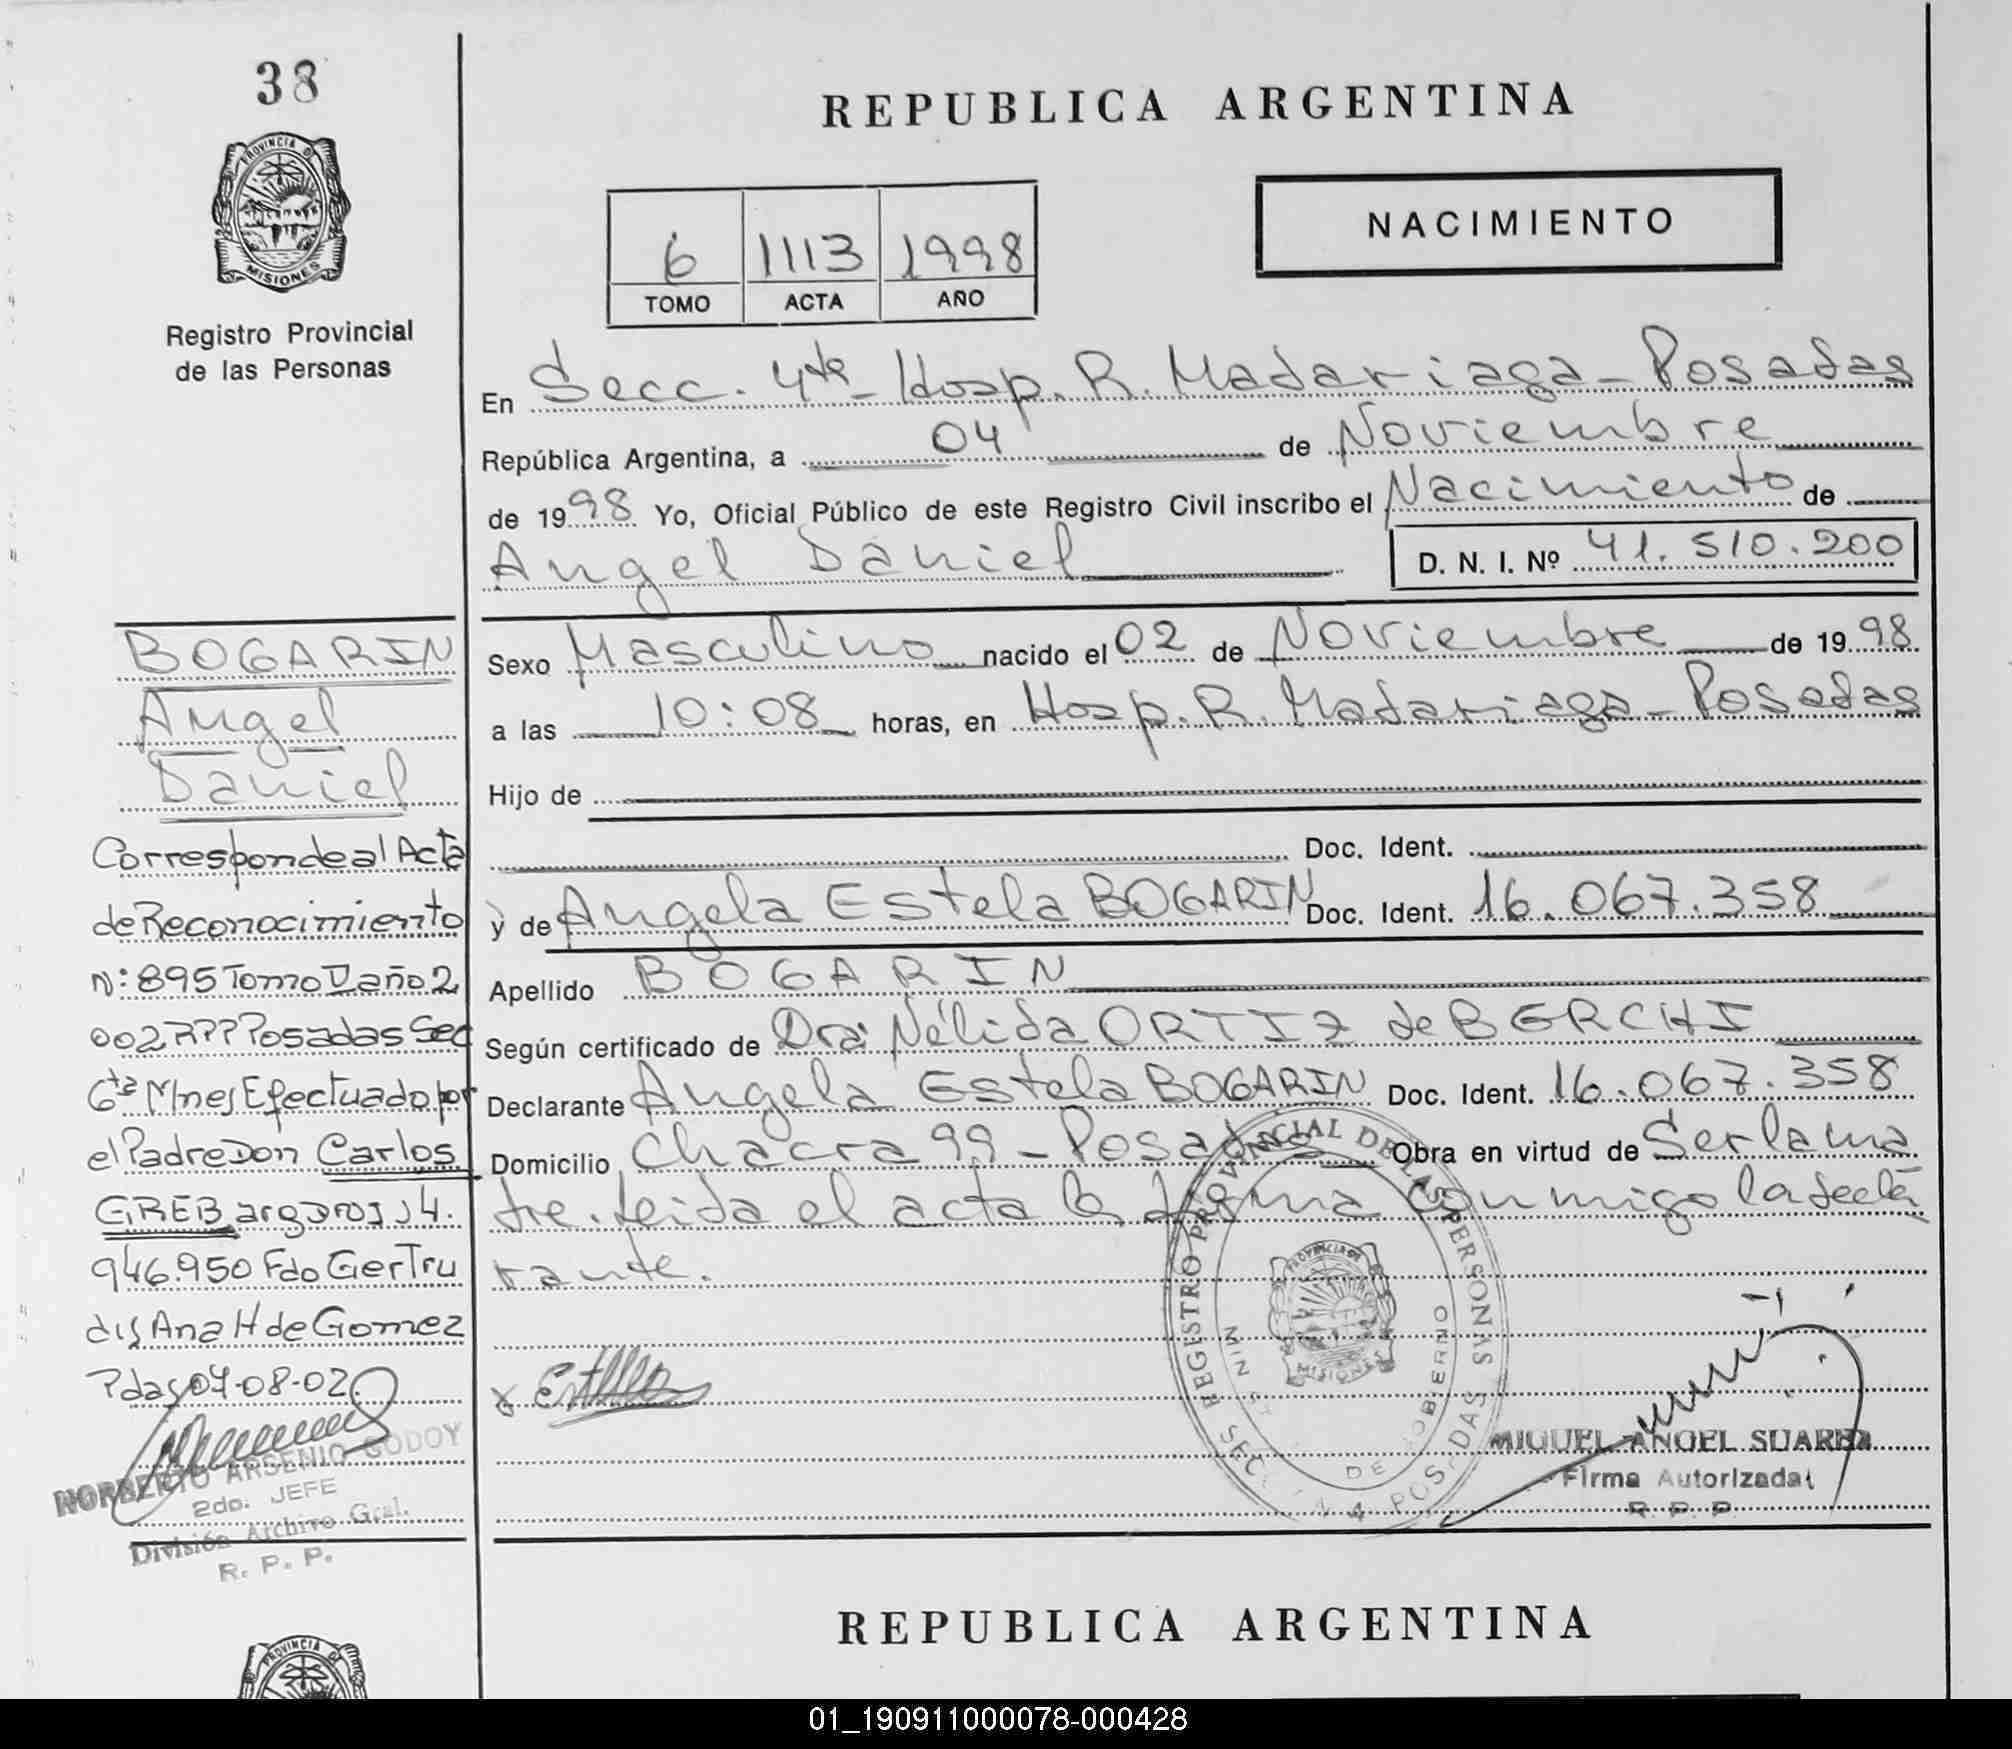 38
PROVINCIA DE
MISIONES
Registro Provincial
de las Personas
REPUBLICA ARGENTINA
NACIMIENTO
6 1113 1998
TOMO ACTA AÑO
En Secc. 4ta - Hosp. R. Madariaga - Posadas
República Argentina, a 04 de Noviembre
de 1998 Yo, Oficial Público de este Registro Civil inscribo el Nacimiento de
Angel Daniel
D. N. I. Nº 41.510.200
Sexo Masculino nacido el 02 de Noviembre de 1998
a las 10:08 horas, en Hosp. R. Madariaga - Posadas
Hijo de
Doc. Ident.
y de Angela Estela BOGARIN Doc. Ident. 16.067.358
Apellido BOGARIN
Según certificado de Dra: Nélida ORTIZ de BERCHI
Declarante Angela Estela BOGARIN Doc. Ident. 16.067.358
Domicilio Chacra 99 - Posadas Obra en virtud de Ser la ma
dre. Leida el acta la firma conmigo la decla
rante.
BOGARIN
Angel
Daniel
Corresponde al Acta
de Reconocimiento
N: 895 Tomo V año 2
002 RPP Posadas Sec
6ta Mnes Efectuado por
el Padre Don Carlos
GREB arg
946.950 Fdo Gertru
dis Ana H de Gomez
Pdas 07-08-02
NORBERTO ARSENIO GODOY
2do. JEFE
División Archivo Gral.
R. P. P.
REGISTRO PROVINCIAL DE LAS PERSONAS
PROVINCIA DE
MISIONES
DE GOBIERNO
POSADAS
MIGUEL ANGEL SUAREZ
Firma Autorizada
R. P. P.
REPUBLICA ARGENTINA
PROVINCIA DE
01_190911000078-000428